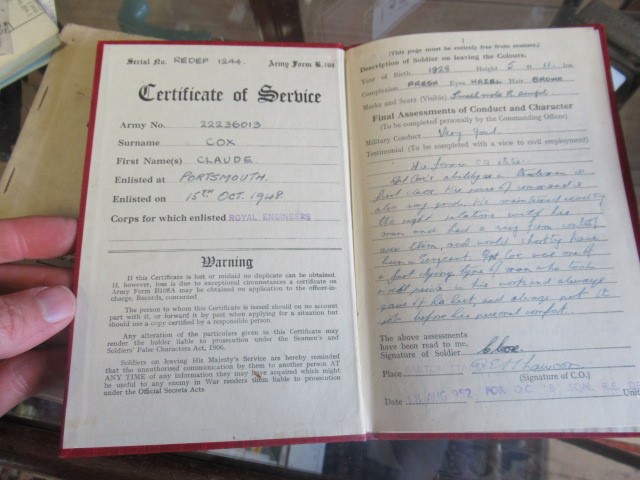 Serial No. REDEP 1244. Army Form B.108
Certificate of Service
Army No. 22236013
Surname COX
First Name(s) CLAUDE.
Enlisted at PORTSMOUTH.
Enlisted on 15TH OCT. 1948.
Corps for which enlisted ROYAL ENGINEERS
Warning
If this Certificate is lost or mislaid no duplicate can be obtained.
If, however, loss is due to exceptional circumstances a certificate on
Army Form may be obtained on application to the officer-in-
charge, Records, concerned.
The person to whom this Certificate is issued should on no account
part with it, or forward it by post when applying for a situation but
should use a copy certified by a responsible person.
Any alteration of the particulars given in this Certificate may
render the holder liable to prosecution under the Seamen's and
Soldiers' False Characters Act, 1906.
Soldiers on leaving His Majesty's Service are hereby reminded
that the unauthorised communication by them to another person AT
ANY TIME of any information they may have acquired which might
be useful to any enemy in War renders them liable to prosecution
under the Official Secrets Acts.
1
(This page must be entirely free from erasure.)
Description of Soldier on leaving the Colours.
Year of Birth 1928 Height 5 ft 11 ins
Complexion FRESH Eyes HAZEL Hair BROWN
Marks and Scars (Visible) Small mole R.
Final Assessments of Conduct and Character
(To be completed personally by the Commanding Officer)
Military Conduct Very Good.
Testimonial (To be completed with a view to civil employment)
His former
Cox's ability as a
first class. His power of command is
also very good. He maintained exactly
the right relations with his
men and had a very firm control
over them, and would shortly have
been a Sergeant. Cox was
a type of man who took
a in his work and always
gave of his best, and always put it
before his personal comfort.
The above assessments
have been read to me.
Signature of Soldier C Cox.
Place
(Signature of C.O.)
Date 18 AUG 1952 FOR O.C. R.E. Unit